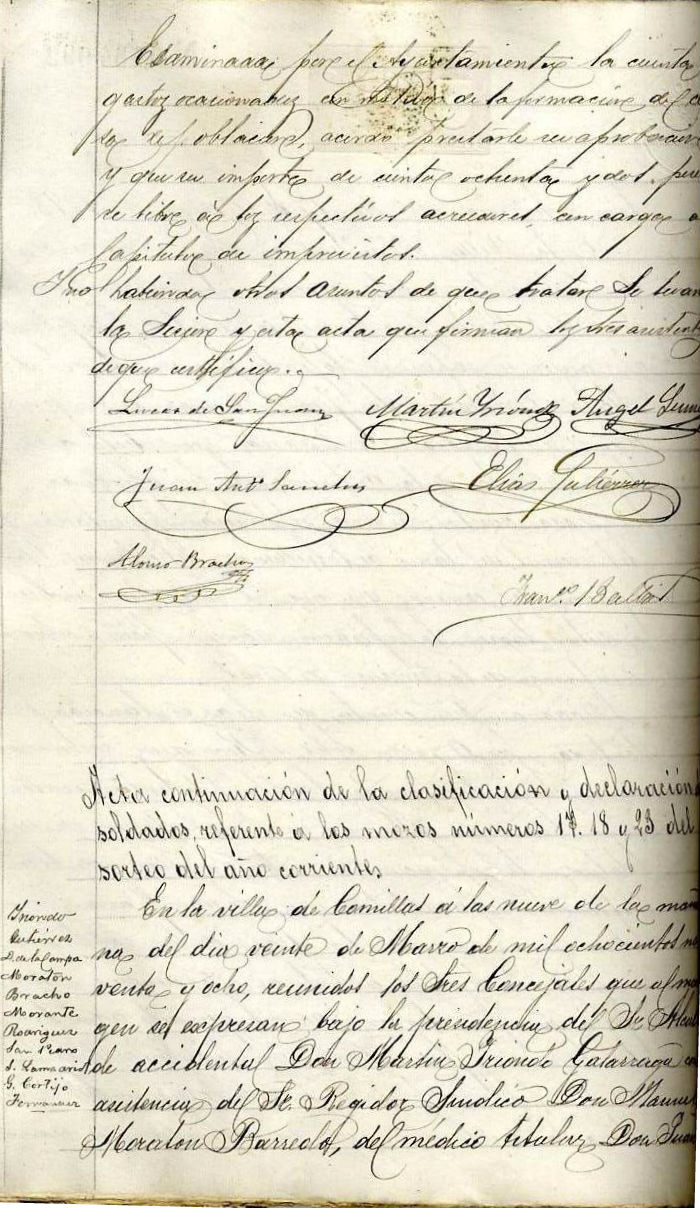 Examinada por el Ayuntamiento la cuenta
gastos ocasionados con motivo de la formacion del
so de poblacion, acordó prestarle su aprobacion
y que su importe de cientos ochenta y dos pe
se libre á los respectivos acreedores, con cargo a
Capitulo de imprevistos.
Y no habiendo otros asuntos de que tratar se levan
la Sesion y esta acta que firman los Sres asistent
de que certifico.
Lucas de San Juan Martín Yriondo Angel
Juan Antº Sanchez Elias Gutiérrez
Alonso Bracho
Franco
Acta continuación de la clasificación y declaración
soldados, referente á los mozos números 17. 18 y 23 del
sorteo del año corriente
Yriondo
Gutiérrez
D. de la Campa
Moratón
Bracho
Morante
Rodriguez
San Pedro
G. Cortijo
Fernandez
En la villa de Comillas á las nueve de la maña
na del dia veinte de Marzo de mil ochocientos no
venta y ocho, reunidos los Sres Concejales que al mar
gen se expresan bajo la presidencia del Sr. Alcal
de accidental Don Martin Yriondo con
asistencia del Sr. Regidor Sindico Don Manuel
Moraton Barreda, del médico titular Don Juan